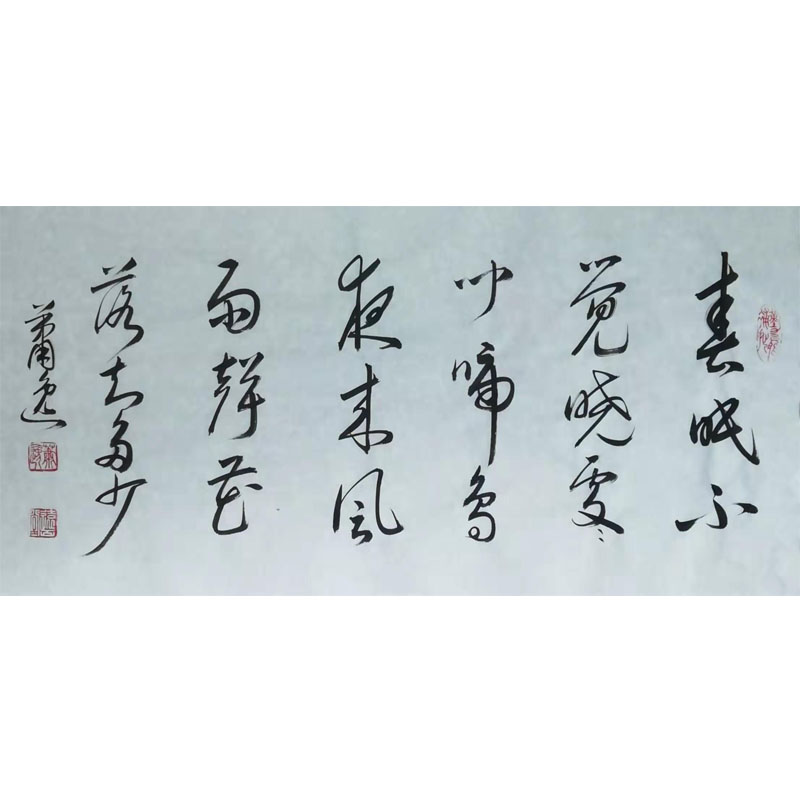 春眠不
觉晓處々
闻啼鸟
夜来风
雨聲花
落知多少
萧逸